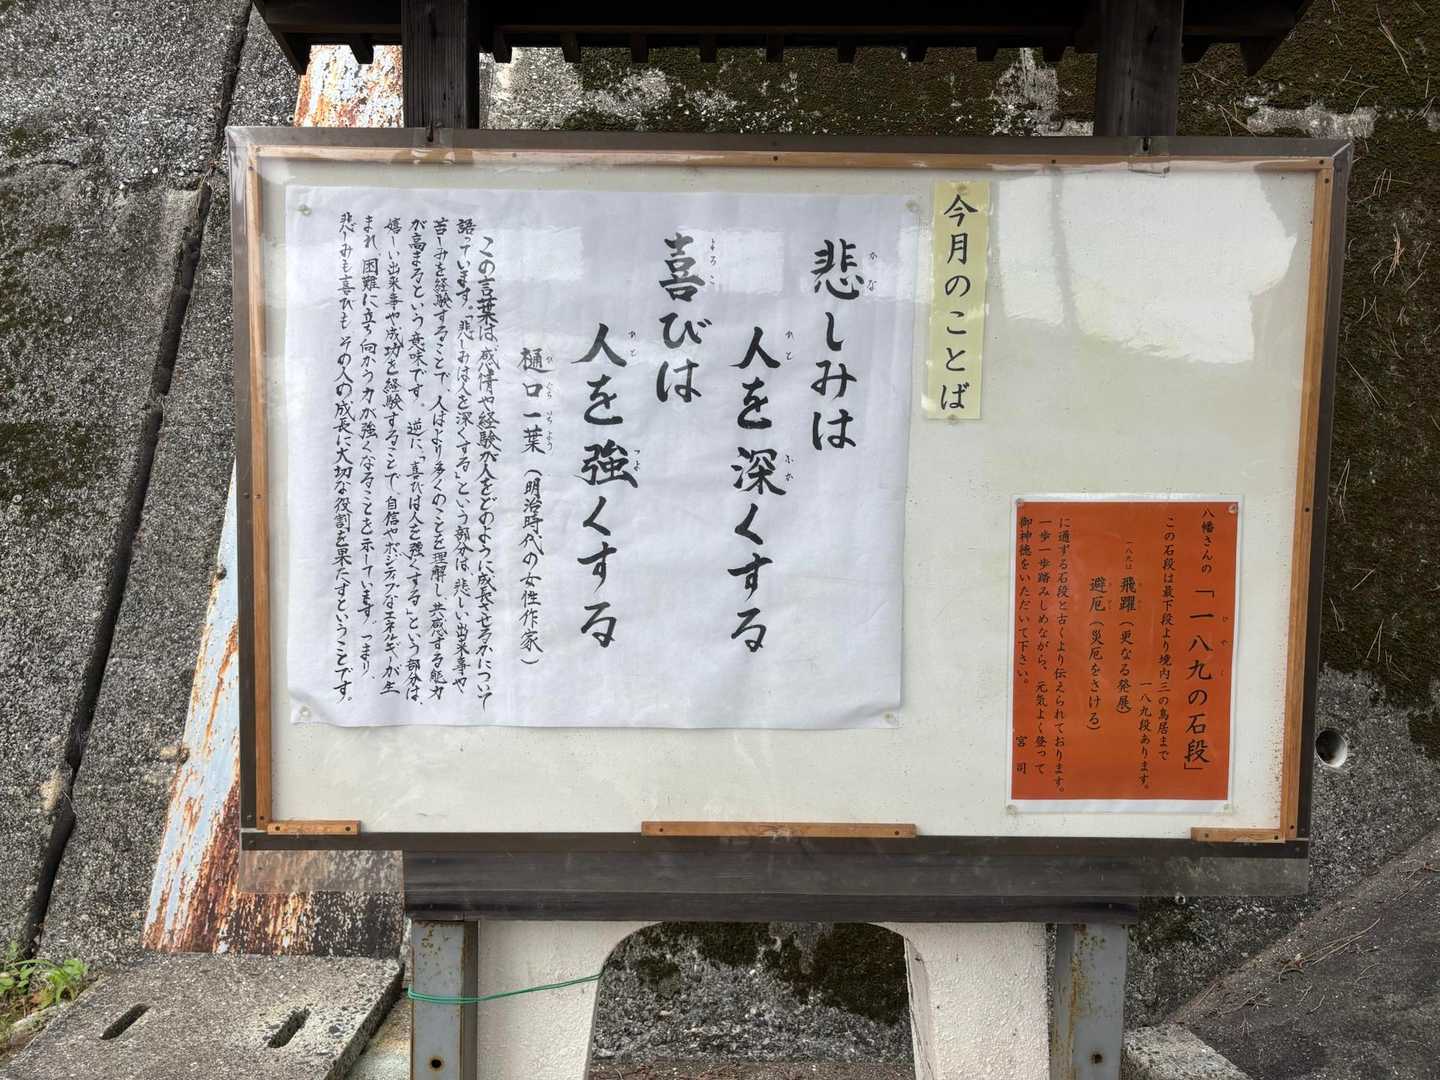 今月のことば
悲しみは
人を深くする
喜びは
人を強くする
樋口一葉（明治時代の女性作家）
この言葉は、感情や経験が人をどのように成長させるかについて
語っています。「悲しみは人を深くする」という部分は、悲しい出来事や
苦しみを経験することで、人はより多くのことを理解し、共感する能力
が高まるという意味です。逆に、「喜びは人を強くする」という部分は、
嬉しい出来事や成功を経験することで、自信やポジティブなエネルギーが生
まれ、困難に立ち向かう力が強くなることを示しています。つまり
悲しみも喜びも その人の成長に大切な役割を果たすということです。
八幡さんの「一八九の石段」
この石段は最下段より境内三の鳥居まで
一八九段あります。
一八九は 飛躍（更なる発展）
避厄（災厄をさける）
に通ずる石段と古くより伝えられております。
一歩一歩踏みしめながら、元気よく登って
御神徳をいただいて下さい。
宮司